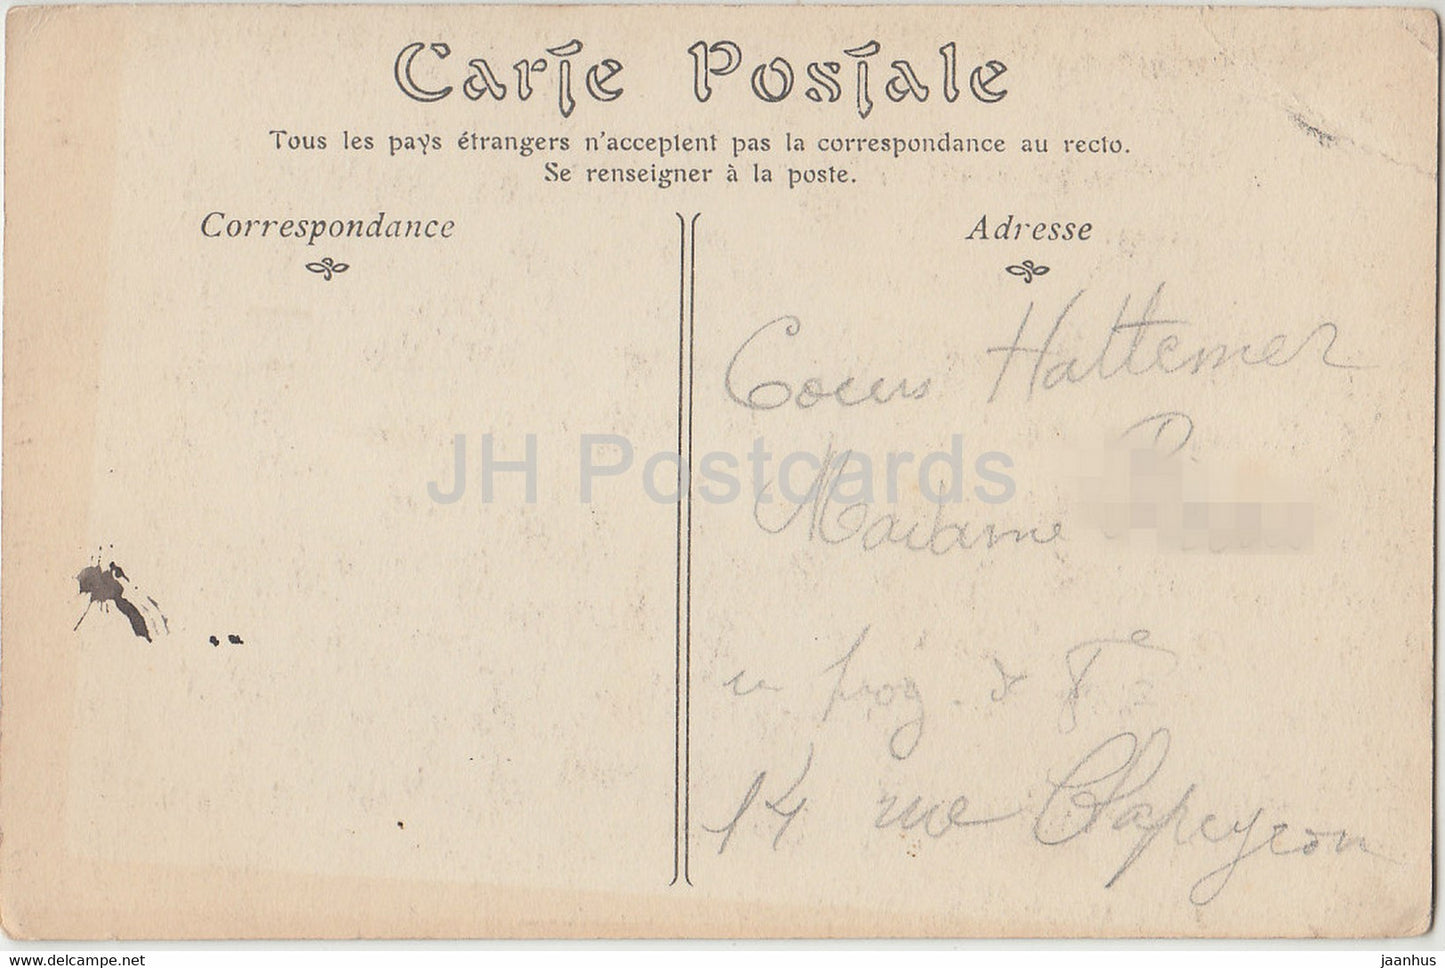 Carte Postale
Tous les pays étrangers n'acceptent pas la correspondance au recto.
Se renseigner à la poste.
Correspondance
Adresse
Cours Hattemer
JH Postcards
Madame
14 rue Clapeyron
www.delcampe.net
jaanhus